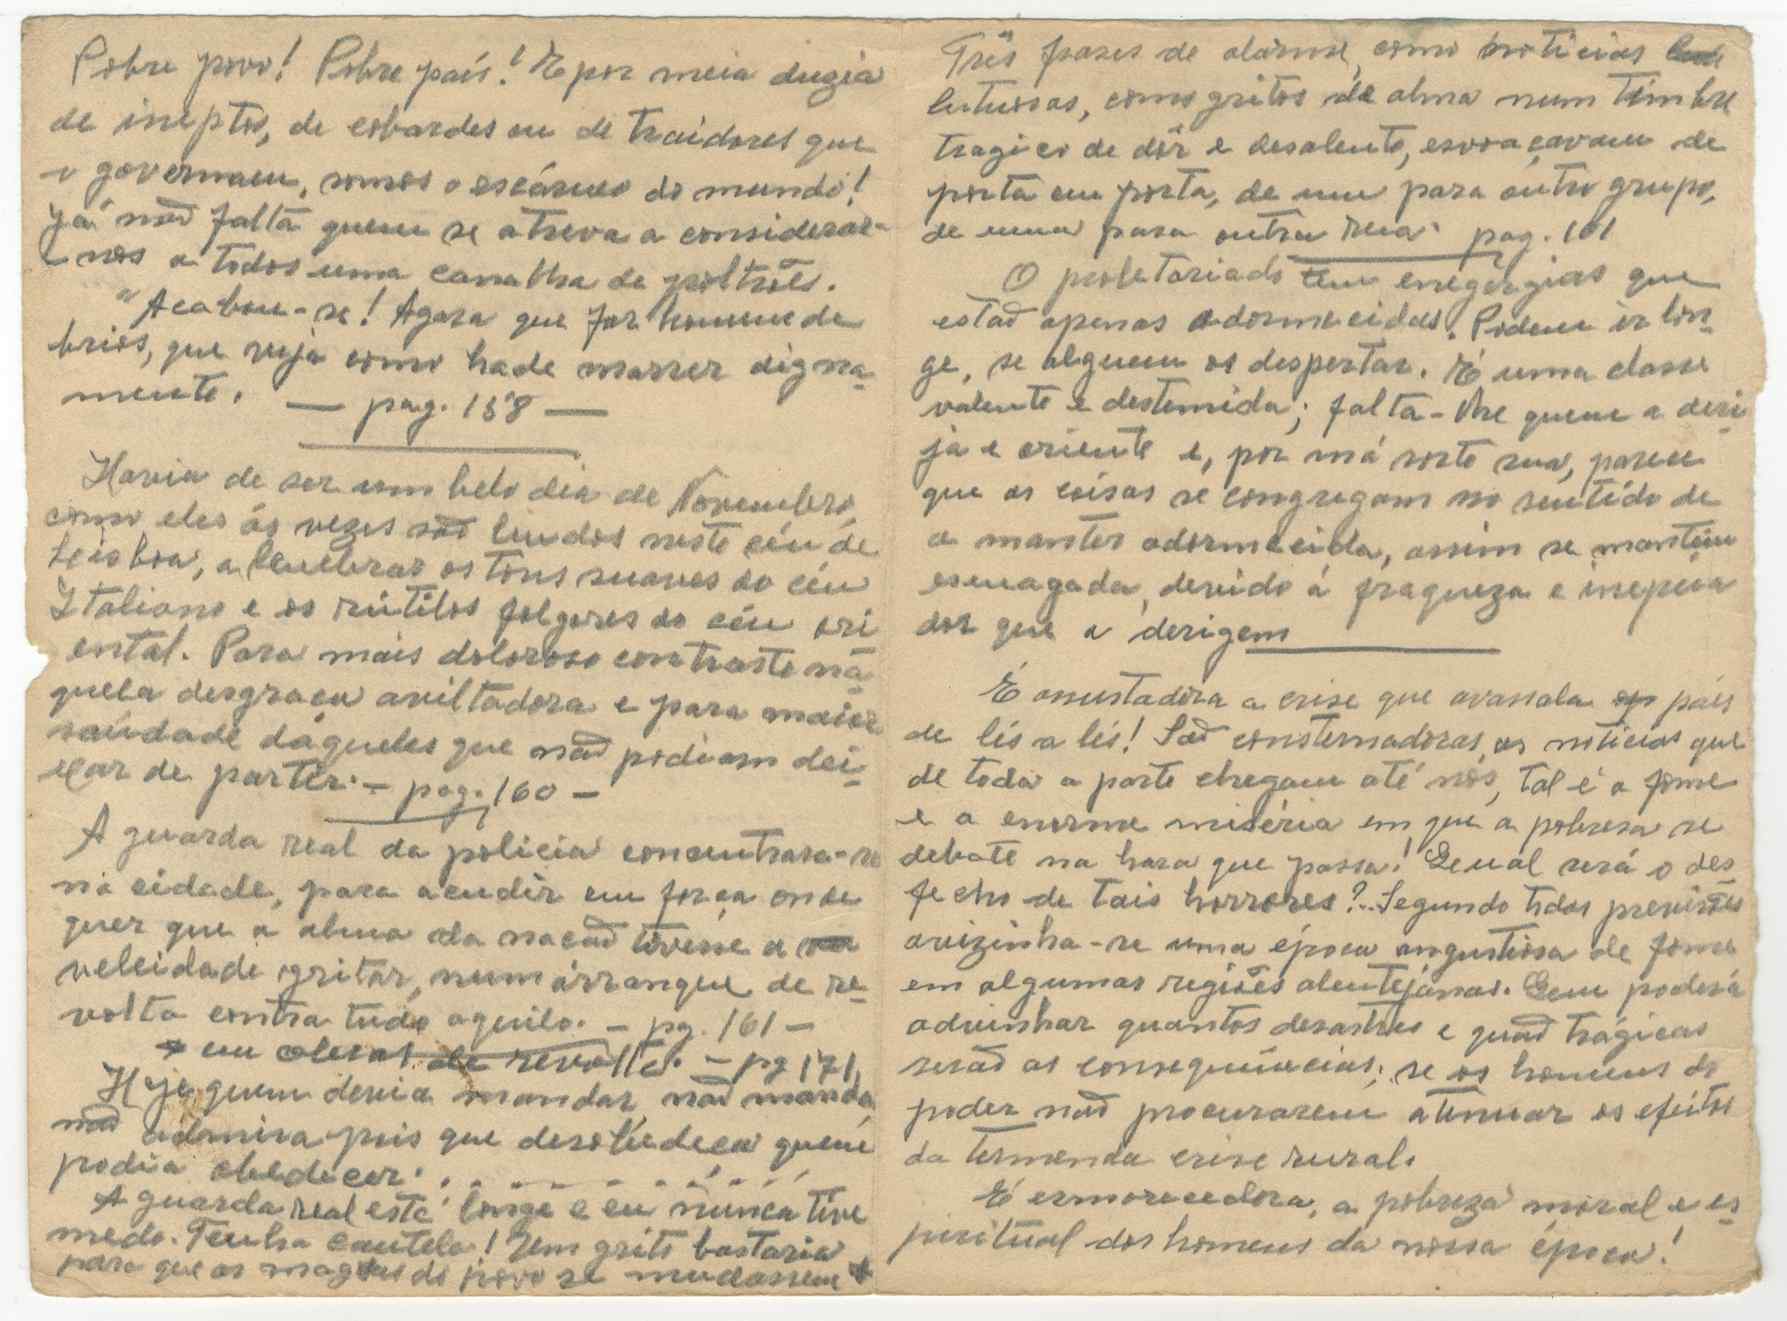 Pobre povo! Pobre país! E por meia duzia
de ineptos, de cobardes ou de traidores que
o governam, somos o escárneo do mundo!
Já não falta quem se atreva a considerar-
-nos a todos uma canalha de poltrões.
"Acabou-se! Agora que for homem de
brios, que veja como hade morrer digna-
mente. — pag. 158 —
Havia de ser um belo dia de Novembro,
como eles ás vezes são lindos neste céu de
Leisboa, a lembrar os tons suaves do céu
Italiano e os rútilos folgores do céu ori
ental. Para mais doloroso contraste na-
quela desgraça aviltadora e para maior
saúdade dáqueles que não podiam dei-
xar de partir. — pag. 160 —
A guarda real da policia concentrara-se
na cidade, para acudir em força onde
quer que a alma da nação tivesse a
veleidade gritar, num arranque de re-
volta contra tudo aquilo. — pg. 161 —
* em de revolta. — pg 171,
Hoje quem devia mandar, não manda
não admira pois que desobedeça quem
podia obedecer. . . . . . . . . .
A guarda real esté longe e eu nunca tive
medo. Tenha cautela! Um grito bastaria
para que as magoas do povo se mudassem *
Três frases de alarme, como noticias
lutuosas, como gritos de alma num timbre
tragico de dôr e desalento, esvoaçavam de
porta em porta, de um para outro grupo,
de uma para outra rua. pag. 161
O proletariado tem energias que
estão apenas adormecidas. Podem ir lon-
ge, se alguem os despertar. É uma classe
valente e destemida; falta-lhe quem a diri-
ja e oriente e, por má sorte sua, parece
que as coisas se congregam no sentido de
a manter adormecida, assim se mantem
esmagada, devido á fraqueza e inepcia
dos que a derigem
É assustadora a crise que avassala o país
de lés a lés! São consternadoras as noticias que
de toda a parte chegam até nós, tal é a fome
e a enorme miséria em que a pobresa se
debate na hora que passa! Qual será o des-
fecho de tais horrores?.. Segundo todas previsões
avizinha-se uma época angustiosa de fome
em algumas regiões alentejanas. Quem poderá
advinhar quantos desastres e quão trágicas
serão as consequências, se os homens do
poder não procurarem atenuar os efeitos
da tremenda crise rural.
É esmorecedora, a pobreza moral e es-
piritual dos homens da nossa época!